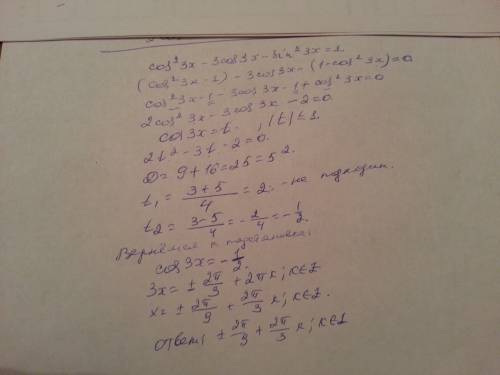 cos²3x - 3cos3x - sin²3x = 1
(cos²3x - 1) - 3cos3x - (1 - cos²3x) = 0
cos²3x - 1 - 3cos3x - 1 + cos²3x = 0
2cos²3x - 3cos3x - 2 = 0.
cos3x = t. , |t| ≤ 1.
2t² - 3t - 2 = 0.
D = 9 + 16 = 25 = 5².
t₁ = (3+5)/4 = 2. - не подходит.
t₂ = (3-5)/4 = -2/4 = -1/2.
Вернёмся к подстановке:
cos3x = -1/2.
3x = ± 2π/3 + 2πk; k∈Z
x = ± 2π/9 + 2π/3 k; k∈Z.
ответ: ± 2π/9 + 2π/3 k; k∈Z